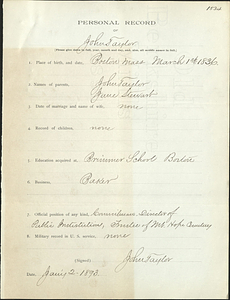 PERSONAL RECORD
OF
John Taylor
(Please give dates in full, your month and day, with full, not middle names in full.)
1. Place of birth, and date, Boston Mass March 1st 1836
2. Names of parents, John Taylor
Jane Stewart
3. Date of marriage and name of wife, none
4. Record of children, none
5. Education acquired at Brimmer School Boston
6. Business, Baker
7. Official position of any kind, Councilman, Director of
Public Institutions, Trustee of Mt Hope Cemetery
8. Military record in U. S. service, none
(Signed) John Taylor
Date, Jany 2 1893